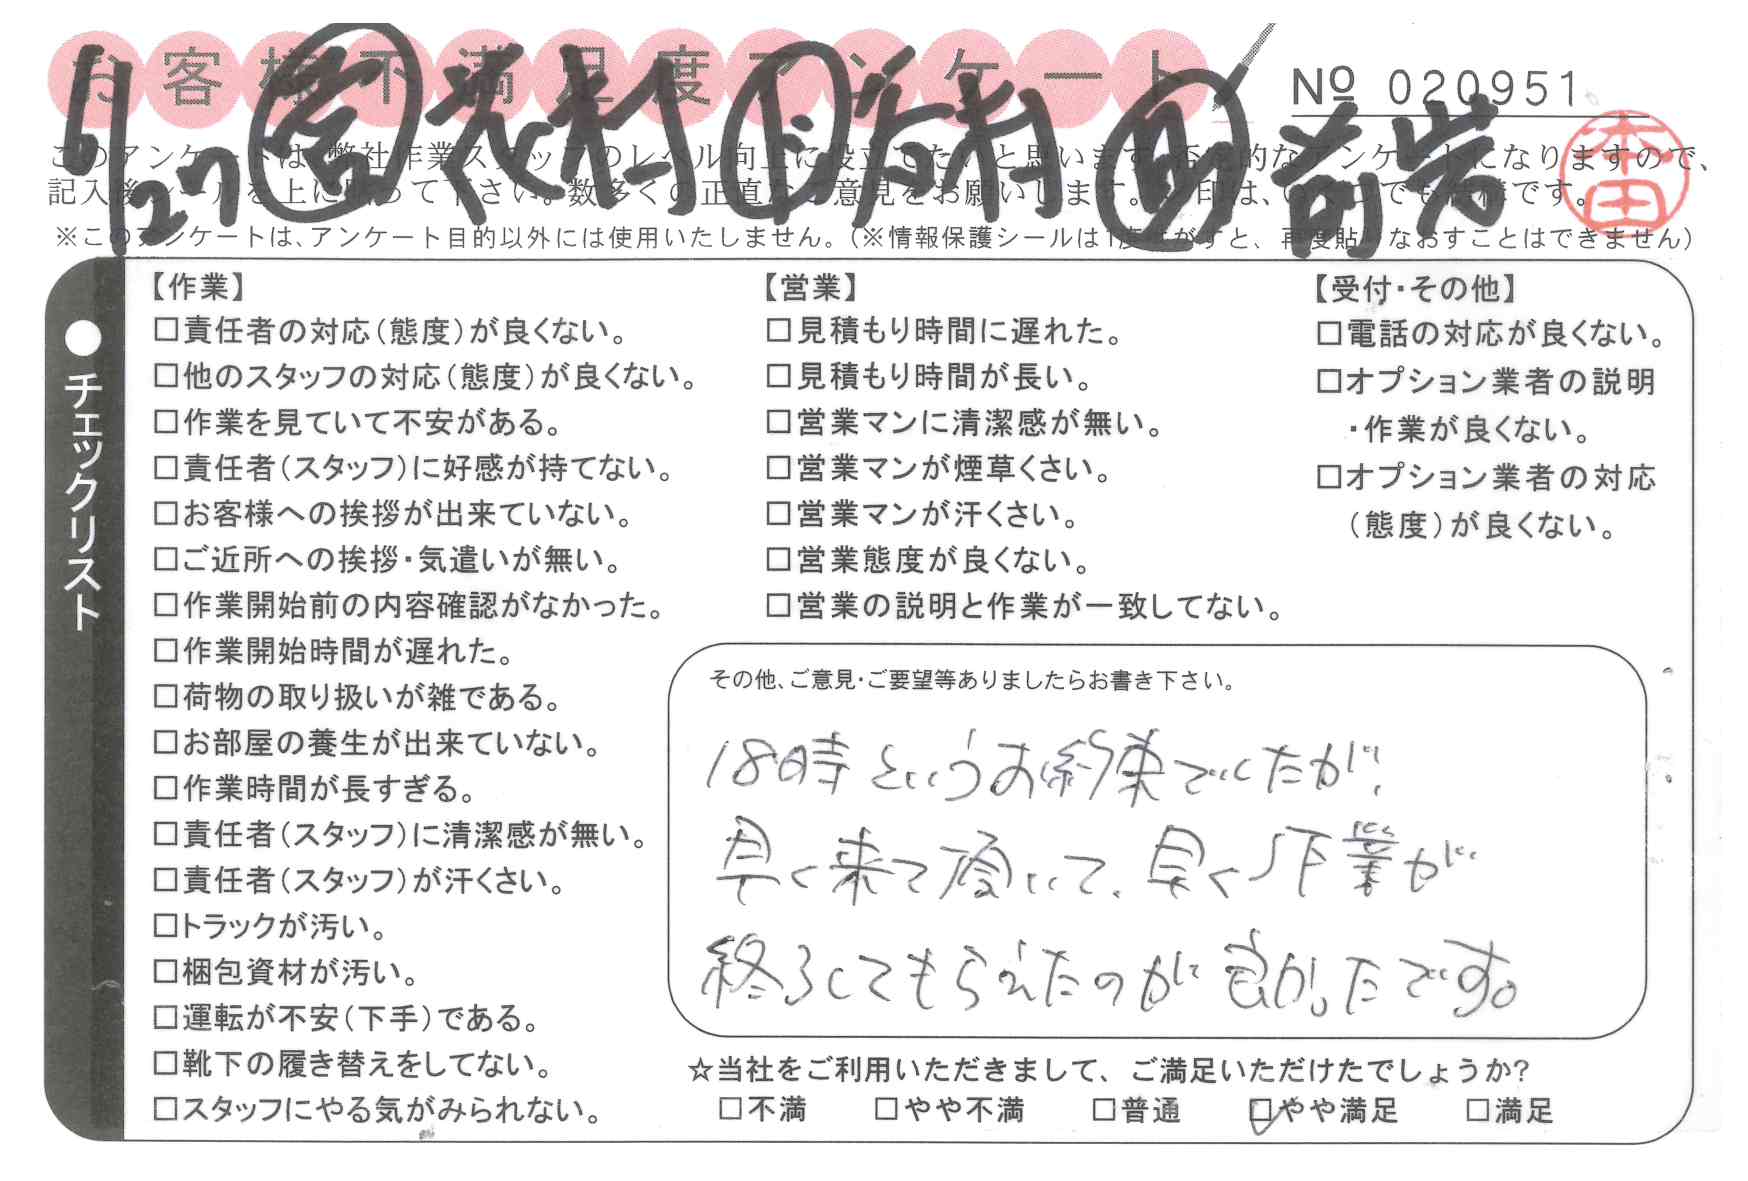 お客様不満足度アンケート
№ 020951
6/27 営 志村 下 谷村 助 前岩
本田
このアンケートは、弊社作業スタッフのレベル向上に役立てたいと思います。否定的なアンケートになりますので、
記入後シールを上に貼って下さい。数多くの正直なご意見をお願いします。レ印は、いくつでも結構です。
※このアンケートは、アンケート目的以外には使用いたしません。（※情報保護シールは1度はがすと、再度貼りなおすことはできません）
●チェックリスト
【作業】
□責任者の対応（態度）が良くない。
□他のスタッフの対応（態度）が良くない。
□作業を見ていて不安がある。
□責任者（スタッフ）に好感が持てない。
□お客様への挨拶が出来ていない。
□ご近所への挨拶・気遣いが無い。
□作業開始前の内容確認がなかった。
□作業開始時間が遅れた。
□荷物の取り扱いが雑である。
□お部屋の養生が出来ていない。
□作業時間が長すぎる。
□責任者（スタッフ）に清潔感が無い。
□責任者（スタッフ）が汗くさい。
□トラックが汚い。
□梱包資材が汚い。
□運転が不安（下手）である。
□靴下の履き替えをしてない。
□スタッフにやる気がみられない。
【営業】
□見積もり時間に遅れた。
□見積もり時間が長い。
□営業マンに清潔感が無い。
□営業マンが煙草くさい。
□営業マンが汗くさい。
□営業態度が良くない。
□営業の説明と作業が一致してない。
【受付・その他】
□電話の対応が良くない。
□オプション業者の説明
・作業が良くない。
□オプション業者の対応
（態度）が良くない。
その他、ご意見・ご要望等ありましたらお書き下さい。
18時というお約束でしたが、
早く来て頂いて、早く作業が
終了してもらえたのが良かったです。
☆当社をご利用いただきまして、ご満足いただけたでしょうか?
□不満 □やや不満 □普通 ☑やや満足 □満足